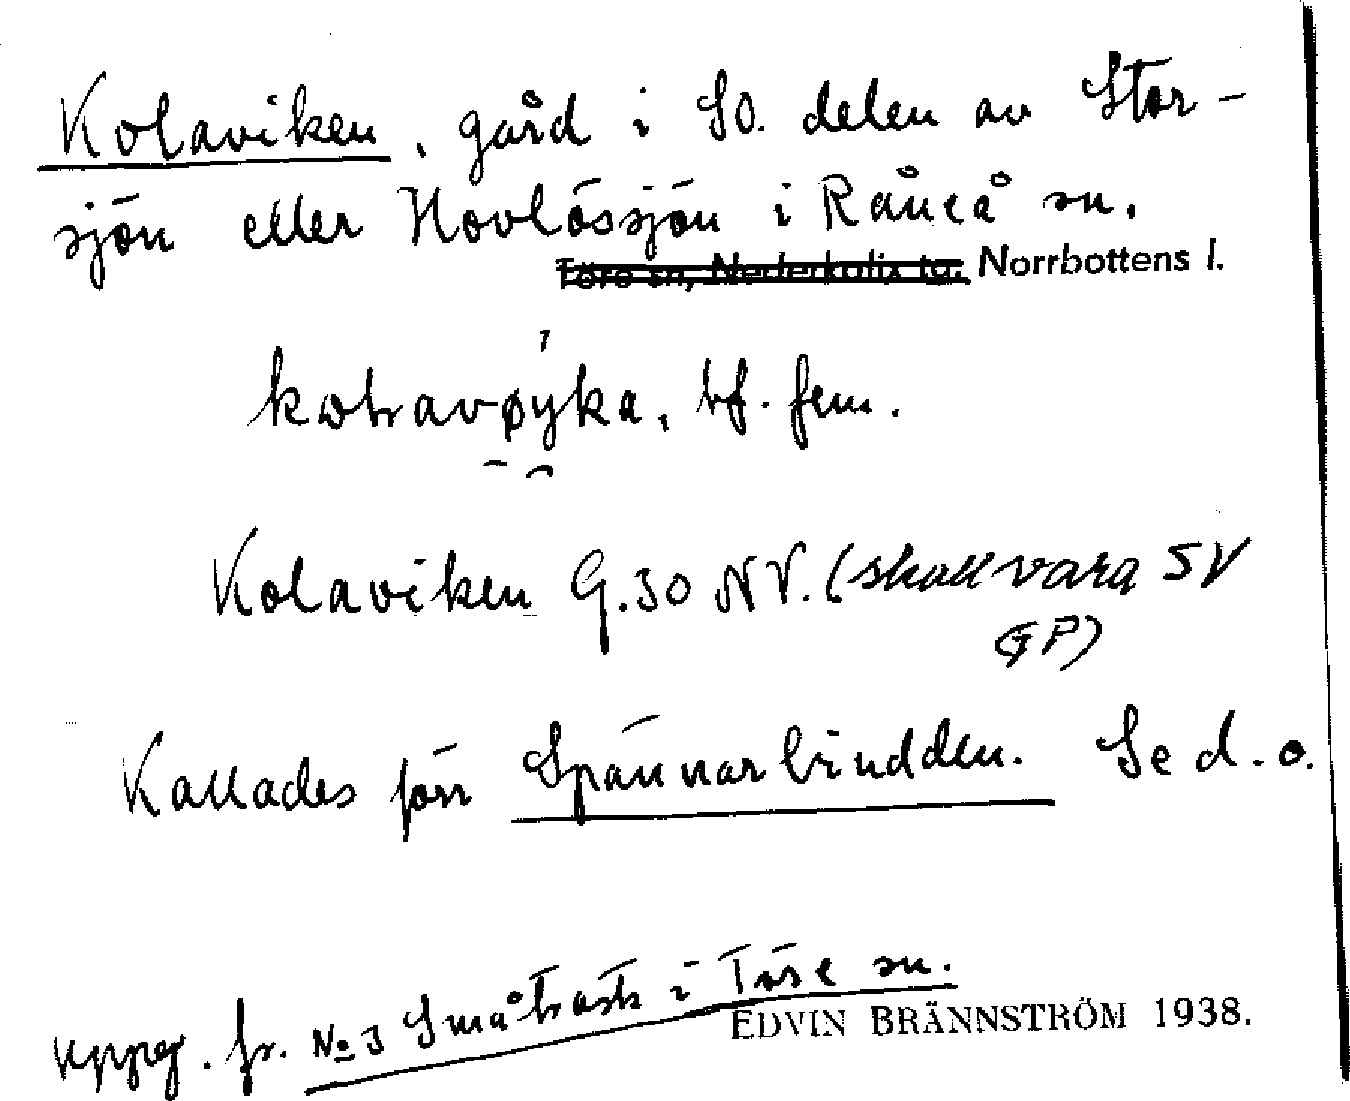 Kolaviken, gård i SO. delen av Stor-
sjön eller Hovlössjön i Råneå sn.
Töre sn, Nederkalix tg. Norrbottens l.
bf. fem.
Kolaviken G.30 NV. (skall vara SV
GP)
Kallades förr Spännarbindden. Se d.o.
uppg. fr. No 3 Småträsk i Töre sn.
EDVIN BRÄNNSTRÖM 1938.